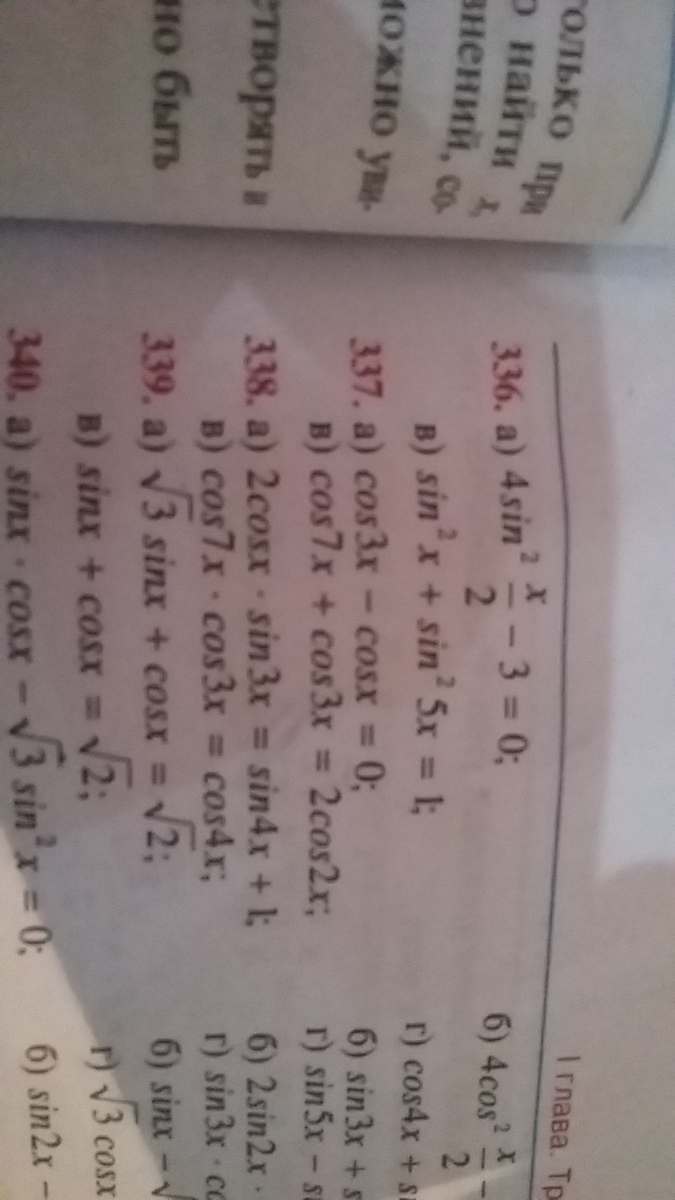 только при
найти x,
внений, со-
можно уви-
етворять и
но быть
I глава. Тр
336. а) 4sin² x/2 − 3 = 0; б) 4cos² x/2 −
в) sin² x + sin² 5x = 1; г) cos4x + si
337. а) cos3x − cosx = 0; б) sin3x + s
в) cos7x + cos3x = 2cos2x; г) sin5x − si
338. а) 2cosx · sin3x = sin4x + 1; б) 2sin2x ·
в) cos7x · cos3x = cos4x; г) sin3x · co
339. а) √3 sinx + cosx = √2; б) sinx − √
в) sinx + cosx = √2; г) √3 cosx
340. а) sinx · cosx − √3 sin² x = 0; б) sin2x −